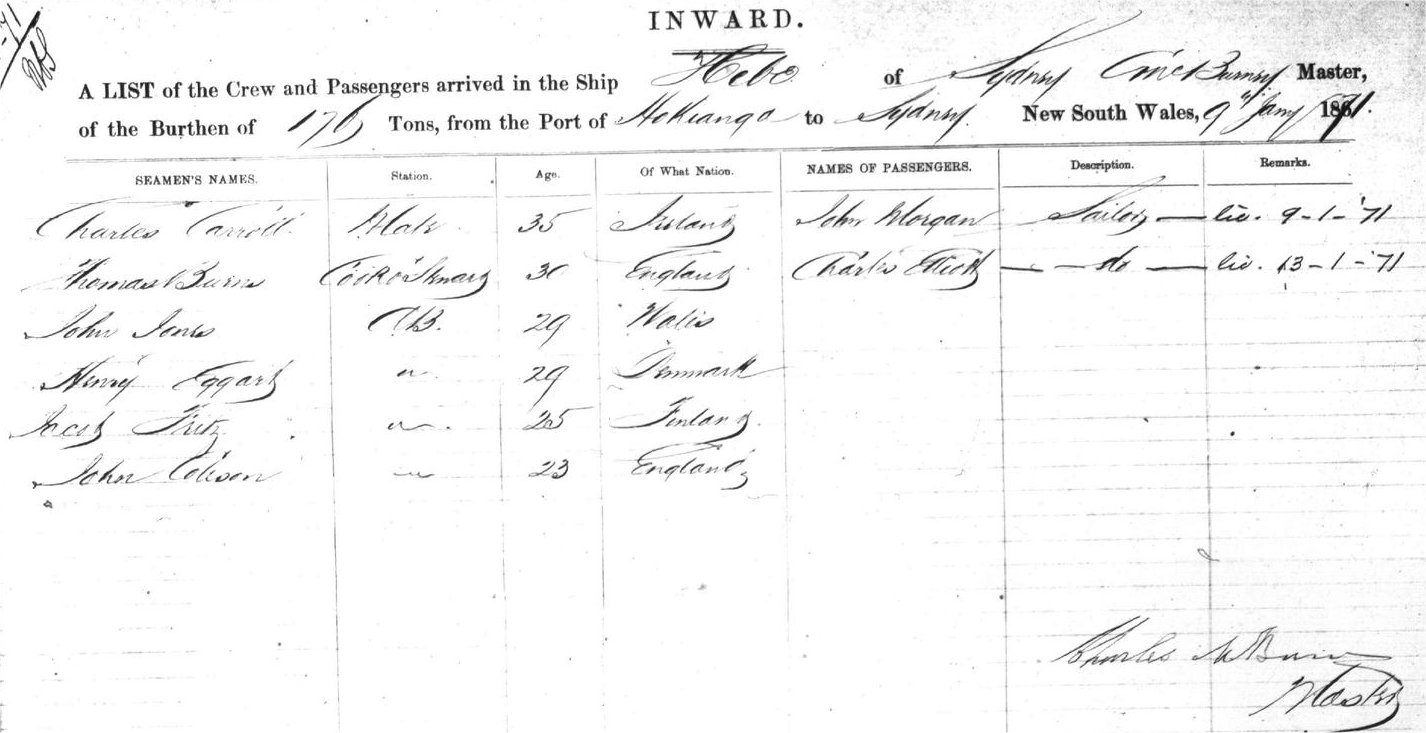 INWARD.
A LIST of the Crew and Passengers arrived in the Ship Hebe of Sydney C McBurney Master,
of the Burthen of 176 Tons, from the Port of Hokianga to Sydney New South Wales, 9th Jany 1871.
SEAMEN'S NAMES. Station. Age. Of What Nation. NAMES OF PASSENGERS. Description. Remarks.
Charles Carroll Mate 35 Ireland John Morgan Sailor — lic. 9-1-'71
Thomas Burns Cook & Steward 30 England Charles Elliott — do — lic. 13-1-'71
John Jones AB. 29 Wales
Henry 29 Denmark
Jacob Fritz 25 Finland
John 23 England
Charles McBurney
Master